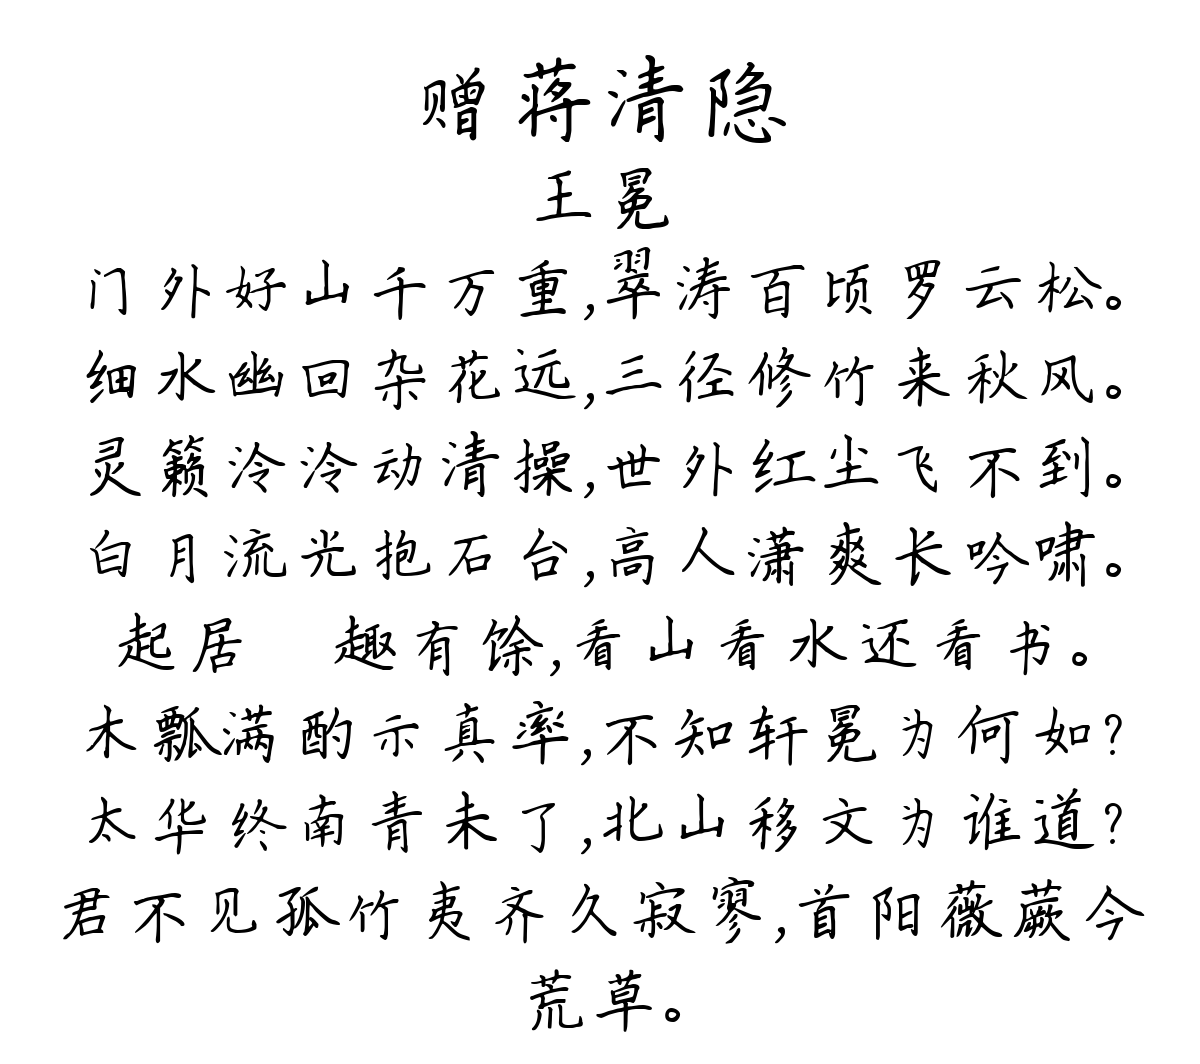 赠蒋清隐
王冕
门外好山千万重,翠涛百顷罗云松。
细水幽回杂花远,三径修竹来秋风。
灵籁泠泠动清操,世外红尘飞不到。
白月流光抱石台,高人潇爽长吟啸。
起居 趣有馀,看山看水还看书。
木瓢满酌示真率,不知轩冕为何如?
太华终南青未了,北山移文为谁道?
君不见孤竹夷齐久寂寥,首阳薇蕨今
荒草。